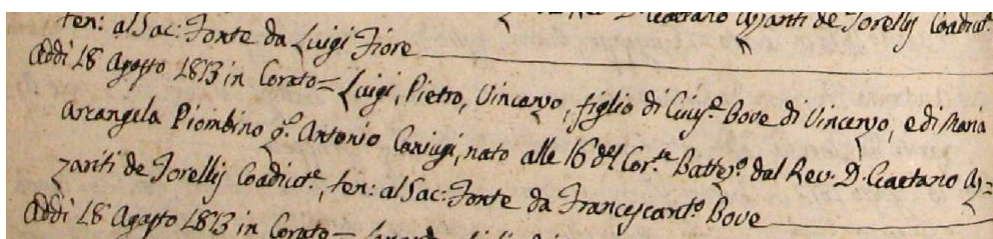 Rev. D. Gaetano Azzariti de Torellis Coadiut.e
ten: al Sac: Fonte da Luigi Fiore
Addì 18 Agosto 1813 in Corato = Luigi, Pietro, Vincenzo, figlio di Giuse.e Bove di Vincenzo, e di Maria
Arcangela Piombino q.m Antonio Coniugi, nato alle 16 del Cor.te Battez.o dal Rev. D. Gaetano Az=
zariti de Torellis Coadiut.e, ten: al Sac: Fonte da Francescant.o Bove
Addì 18 Agosto 1813 in Corato =